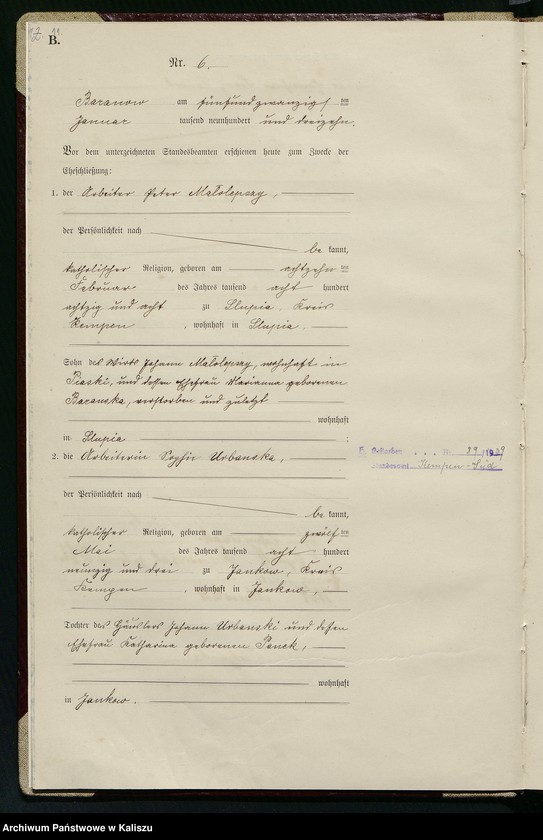 B.
Nr. 6.
Baranow am fünfundzwanzigsten
Januar tausend neunhundert und dreizehn.
Vor dem unterzeichneten Standesbeamten erschienen heute zum Zwecke der
Eheschließung:
1. der Arbeiter Peter Małolepszy,
der Persönlichkeit nach
bekannt,
katholischer Religion, geboren am achtzehnten
Februar des Jahres tausend acht hundert
achtzig und acht zu Slupia, Kreis
Kempen, wohnhaft in Slupia.
Sohn des Wirts Johann Małolepszy, wohnhaft in
Piaski, und dessen Ehefrau Marianna geborenen
Baranska, verstorben und zuletzt
wohnhaft
in Slupia ;
2. die Arbeiterin Sophie Urbanska,
der Persönlichkeit nach
bekannt,
katholischer Religion, geboren am zwölften
Mai des Jahres tausend acht hundert
neunzig und drei zu Jankow, Kreis
Kempen, wohnhaft in Jankow,
Tochter des Häuslers Johann Urbanski und dessen
Ehefrau Katharina geborenen
wohnhaft
in Jankow.
Nr. 1939
Kempen-Süd
Archiwum Państwowe w Kaliszu